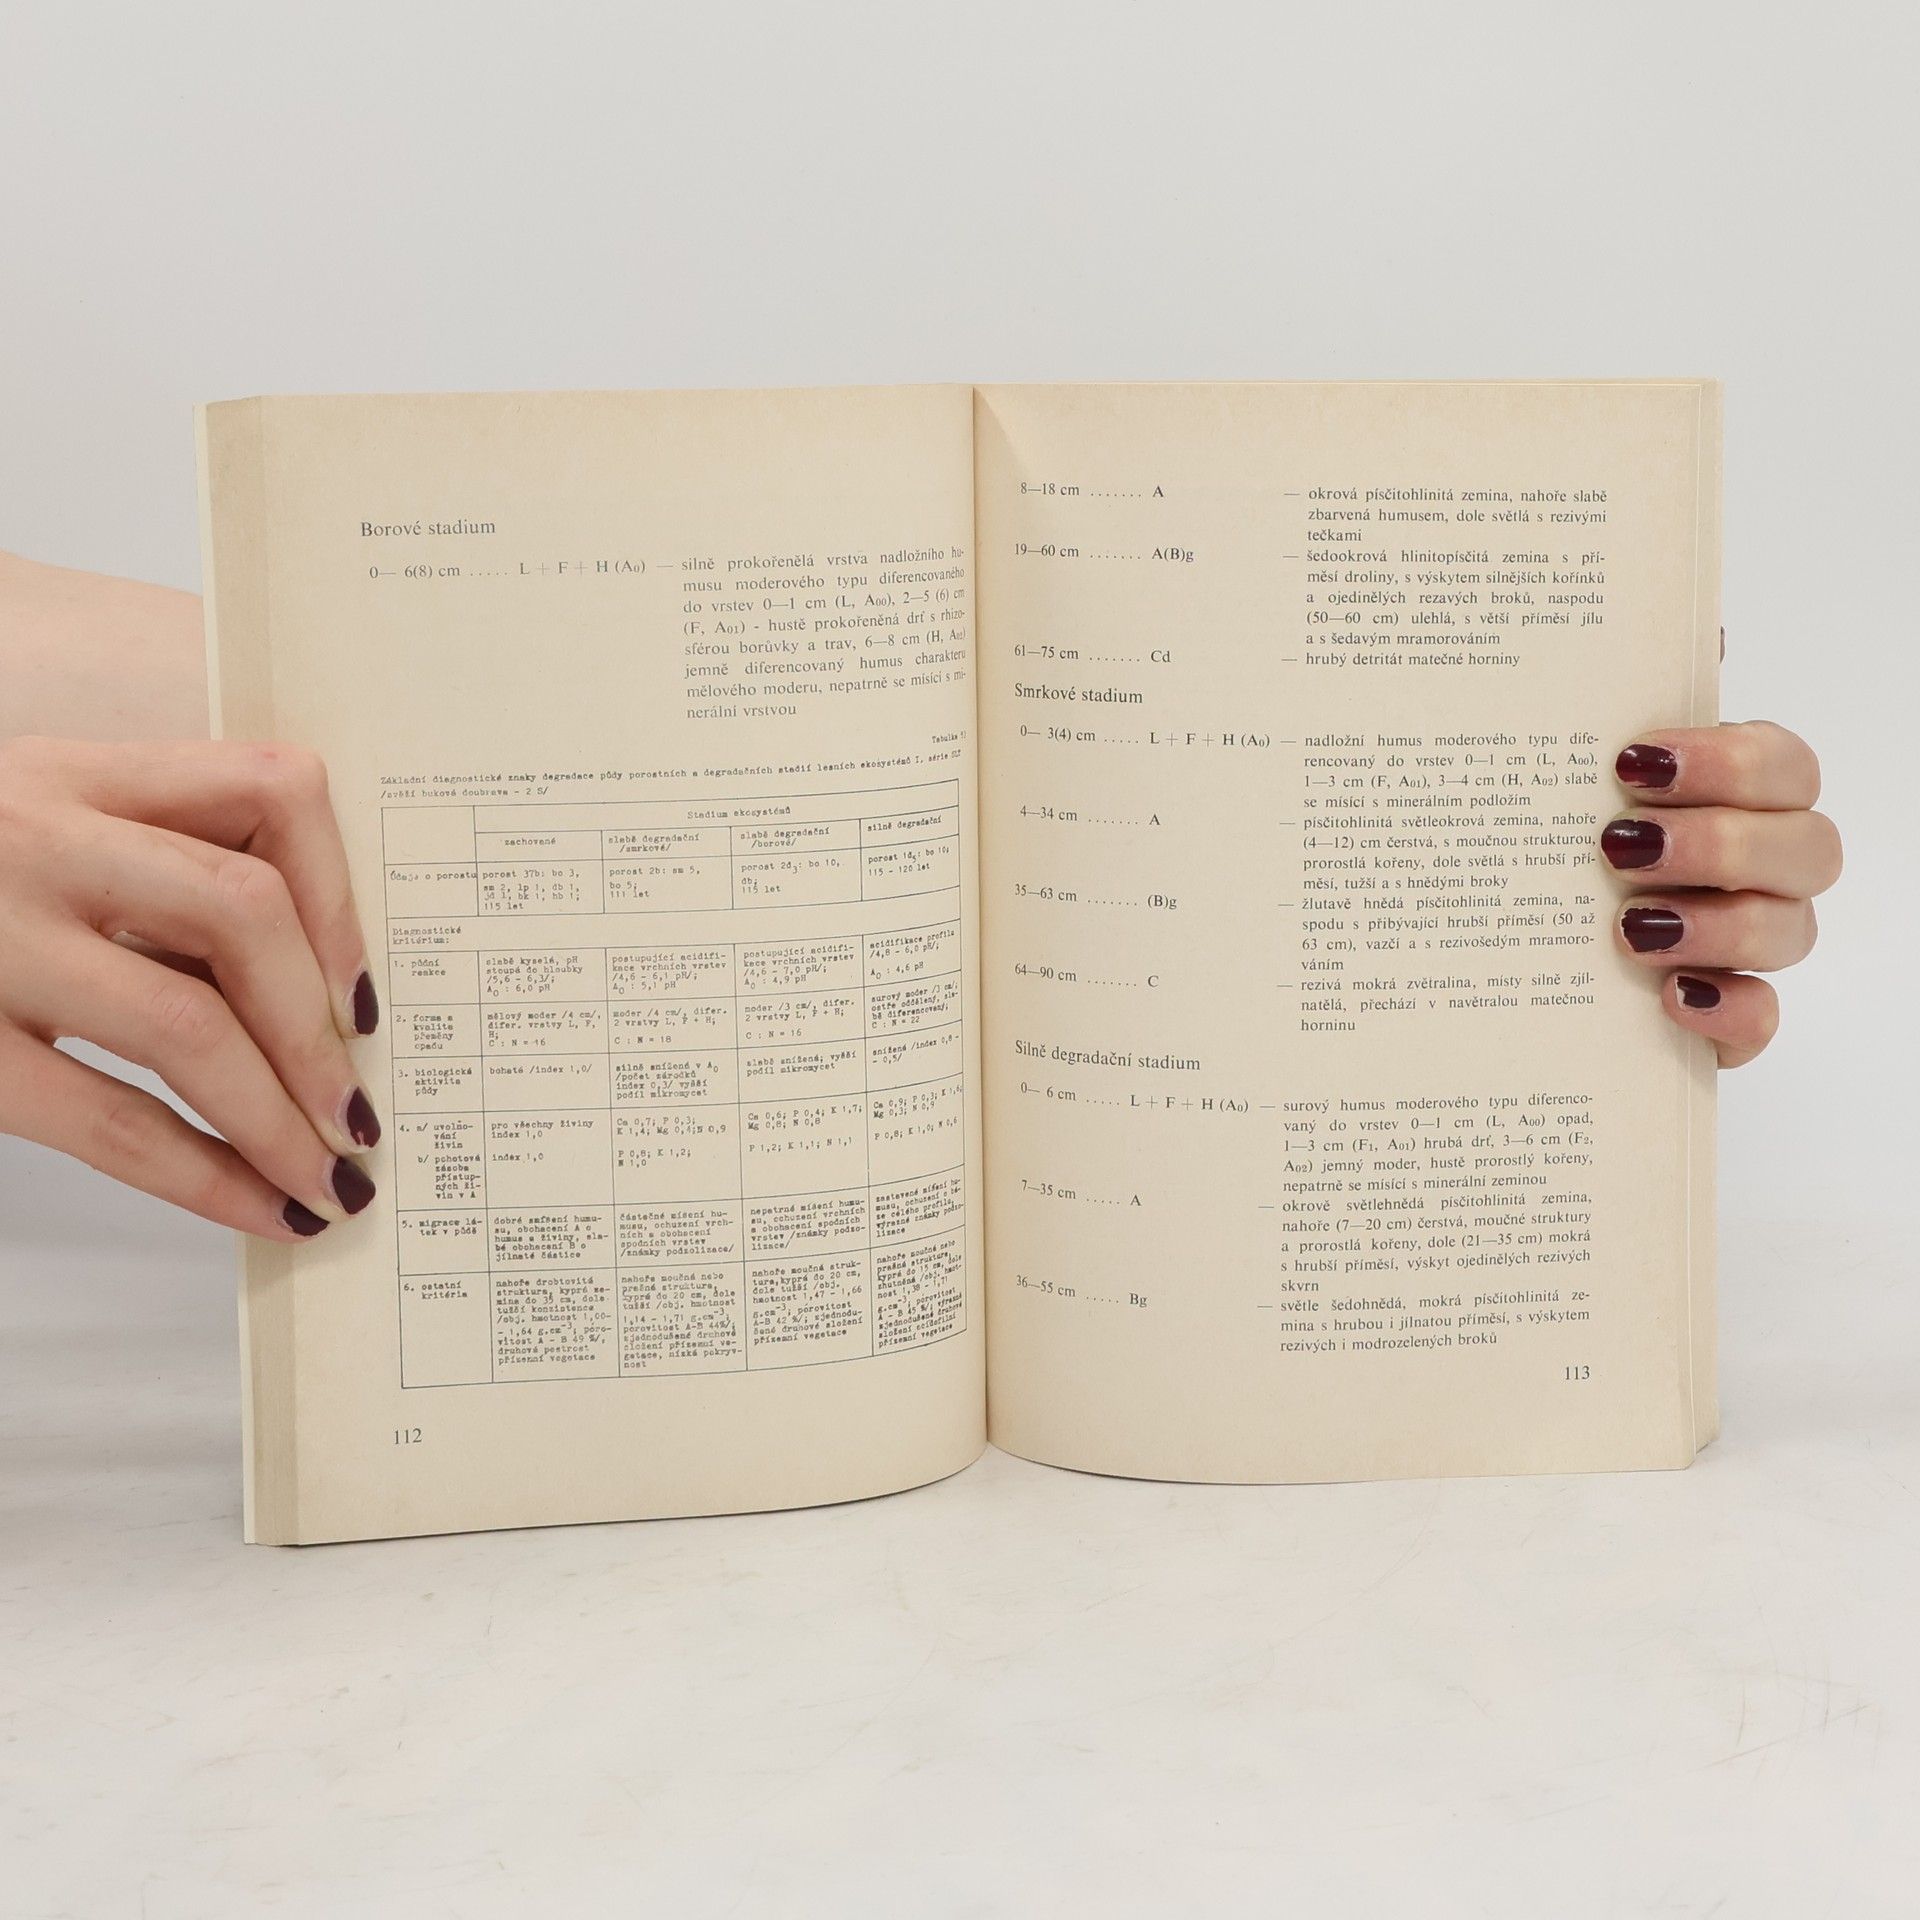 Borové stadium
0— 6(8) cm ..... L + F + H (A₀) — silně prokořenělá vrstva nadložního hu-
musu moderového typu diferencovaného
do vrstev 0—1 cm (L, A₀₀), 2—5 (6) cm
(F, A₀₁) - hustě prokořeněná drť s rhizo-
sférou borůvky a trav, 6—8 cm (H, A₀₂)
jemně diferencovaný humus charakteru
mělového moderu, nepatrně se mísící s mi-
nerální vrstvou
Tabulka
Základní diagnostické znaky degradace půdy porostních a degradačních stadií lesních ekosystémů I. série SLT
/svěží buková doubrava - 2 S/
Stadium ekosystémů
zachované
slabě degradační
/smrkové/
slabě degradační
/borové/
silně degradační
Údaje o porostu
porost 37b: bo 3,
sm 2, lp 1, db 1,
jd 1, bk 1, hb 1;
115 let
porost 2b: sm 5,
bo 5;
111 let
porost 2d₃: bo 10,
db;
115 let
porost 1d₅: bo 10;
115 - 120 let
Diagnostické
kritérium:
1. půdní
reakce
slabě kyselá, pH
stoupá do hloubky
/5,6 - 6,3/;
A₀ : 6,0 pH
postupující acidifi-
kace vrchních vrstev
/4,6 - 6,1 pH/;
A₀ : 5,1 pH
postupující acidifi-
kace vrchních vrstev
/4,6 - 7,0 pH/;
A₀ : 4,9 pH
acidifikace profilu
/4,8 - 6,0 pH/;
A₀ : 4,6 pH
2. forma a
kvalita
přeměny
opadu
mělový moder /4 cm/,
difer. vrstvy L, F,
H;
C : N = 16
moder /4 cm/, difer.
2 vrstvy L, F + H;
C : N = 18
moder /3 cm/, difer.
2 vrstvy L, F + H;
C : N = 16
surový moder /3 cm/;
ostře oddělený, sla-
bě diferencovaný;
C : N = 22
3. biologická
aktivita
půdy
bohatá /index 1,0/
silně snížená v A₀
/počet zárodků
index 0,3/ vyšší
podíl mikromycet
slabě snížená; vyšší
podíl mikromycet
snížená /index 0,8 -
- 0,5/
4. a/ uvolňo-
vání
živin
b/ pohotová
zásoba
přístup-
ných ži-
vin v A
pro všechny živiny
index 1,0
index 1,0
Ca 0,7; P 0,3;
K 1,4; Mg 0,4; N 0,9
P 0,8; K 1,2;
N 1,0
Ca 0,6; P 0,4; K 1,7;
Mg 0,8; N 0,8
P 1,2; K 1,1; N 1,1
Ca 0,9; P 0,3; K 1,6;
Mg 0,3; N 0,9
P 0,8; K 1,0; N 0,6
5. migrace lá-
tek v půdě
dobré smíšení humu-
su, obohacení A o
humus a živiny, sla-
bé obohacení B o
jílnaté částice
částečné mísení hu-
musu, ochuzení vrch-
ních a obohacení
spodních vrstev
/známky podzolizace/
nepatrné mísení humu-
su, ochuzení vrchních
a obohacení spodních
vrstev /známky podzo-
lizace/
zastavené mísení hu-
musu, ochuzení o bá-
ze celého profilu,
výrazné známky podzo-
lizace
6. ostatní
kritéria
nahoře drobtovitá
struktura, kyprá ze-
mina do 35 cm, dole
tužší konzistence
/obj. hmotnost 1,00-
- 1,64 g.cm⁻³; póro-
vitost A - B 49 %/;
druhová pestrost
přízemní vegetace
nahoře moučná nebo
prašná struktura,
kyprá do 20 cm, dole
tužší /obj. hmotnost
1,14 - 1,71 g.cm⁻³,
pórovitost A-B 44%/;
zjednodušené druhové
složení přízemní ve-
getace, nízká pokryv-
nost
nahoře moučná struk-
tura, kyprá do 20 cm,
dole tužší /obj.
hmotnost 1,47 - 1,66
g.cm⁻³; pórovitost
A-B 42 %/; zjednodu-
šené druhové složení
přízemní vegetace
nahoře moučná nebo
prašná struktura,
kyprá do 15 cm, dole
zhutněná /obj. hmot-
nost 1,38 - 1,71
g.cm⁻³; pórovitost
A - B 45 %/; výrazně
zjednodušené druhové
složení acidofilní
přízemní vegetace
112
8—18 cm ....... A — okrová písčitohlinitá zemina, nahoře slabě
zbarvená humusem, dole světlá s rezivými
tečkami
19—60 cm ....... A(B)g — šedookrová hlinitopísčitá zemina s pří-
měsí droliny, s výskytem silnějších kořínků
a ojedinělých rezavých broků, naspodu
(50—60 cm) ulehlá, s větší příměsí jílu
a s šedavým mramorováním
61—75 cm ....... Cd — hrubý detritát matečné horniny
Smrkové stadium
0— 3(4) cm ..... L + F + H (A₀) — nadložní humus moderového typu dife-
rencovaný do vrstev 0—1 cm (L, A₀₀),
1—3 cm (F, A₀₁), 3—4 cm (H, A₀₂) slabě
se mísící s minerálním podložím
4—34 cm ....... A — písčitohlinitá světleokrová zemina, nahoře
(4—12) cm čerstvá, s moučnou strukturou,
prorostlá kořeny, dole světlá s hrubší pří-
měsí, tužší a s hnědými broky
35—63 cm ....... (B)g — žlutavě hnědá písčitohlinitá zemina, na-
spodu s přibývající hrubší příměsí (50 až
63 cm), vazčí a s rezivošedým mramoro-
váním
64—90 cm ....... C — rezivá mokrá zvětralina, místy silně zjíl-
natělá, přechází v navětralou matečnou
horninu
Silně degradační stadium
0— 6 cm ..... L + F + H (A₀) — surový humus moderového typu diferenco-
vaný do vrstev 0—1 cm (L, A₀₀) opad,
1—3 cm (F₁, A₀₁) hrubá drť, 3—6 cm (F₂,
A₀₂) jemný moder, hustě prorostlý kořeny,
nepatrně se mísící s minerální zeminou
7—35 cm ..... A — okrově světlehnědá písčitohlinitá zemina,
nahoře (7—20 cm) čerstvá, moučné struktury
a prorostlá kořeny, dole (21—35 cm) mokrá
s hrubší příměsí, výskyt ojedinělých rezivých
skvrn
36—55 cm ..... Bg — světle šedohnědá, mokrá písčitohlinitá ze-
mina s hrubou i jílnatou příměsí, s výskytem
rezivých i modrozelených broků
113